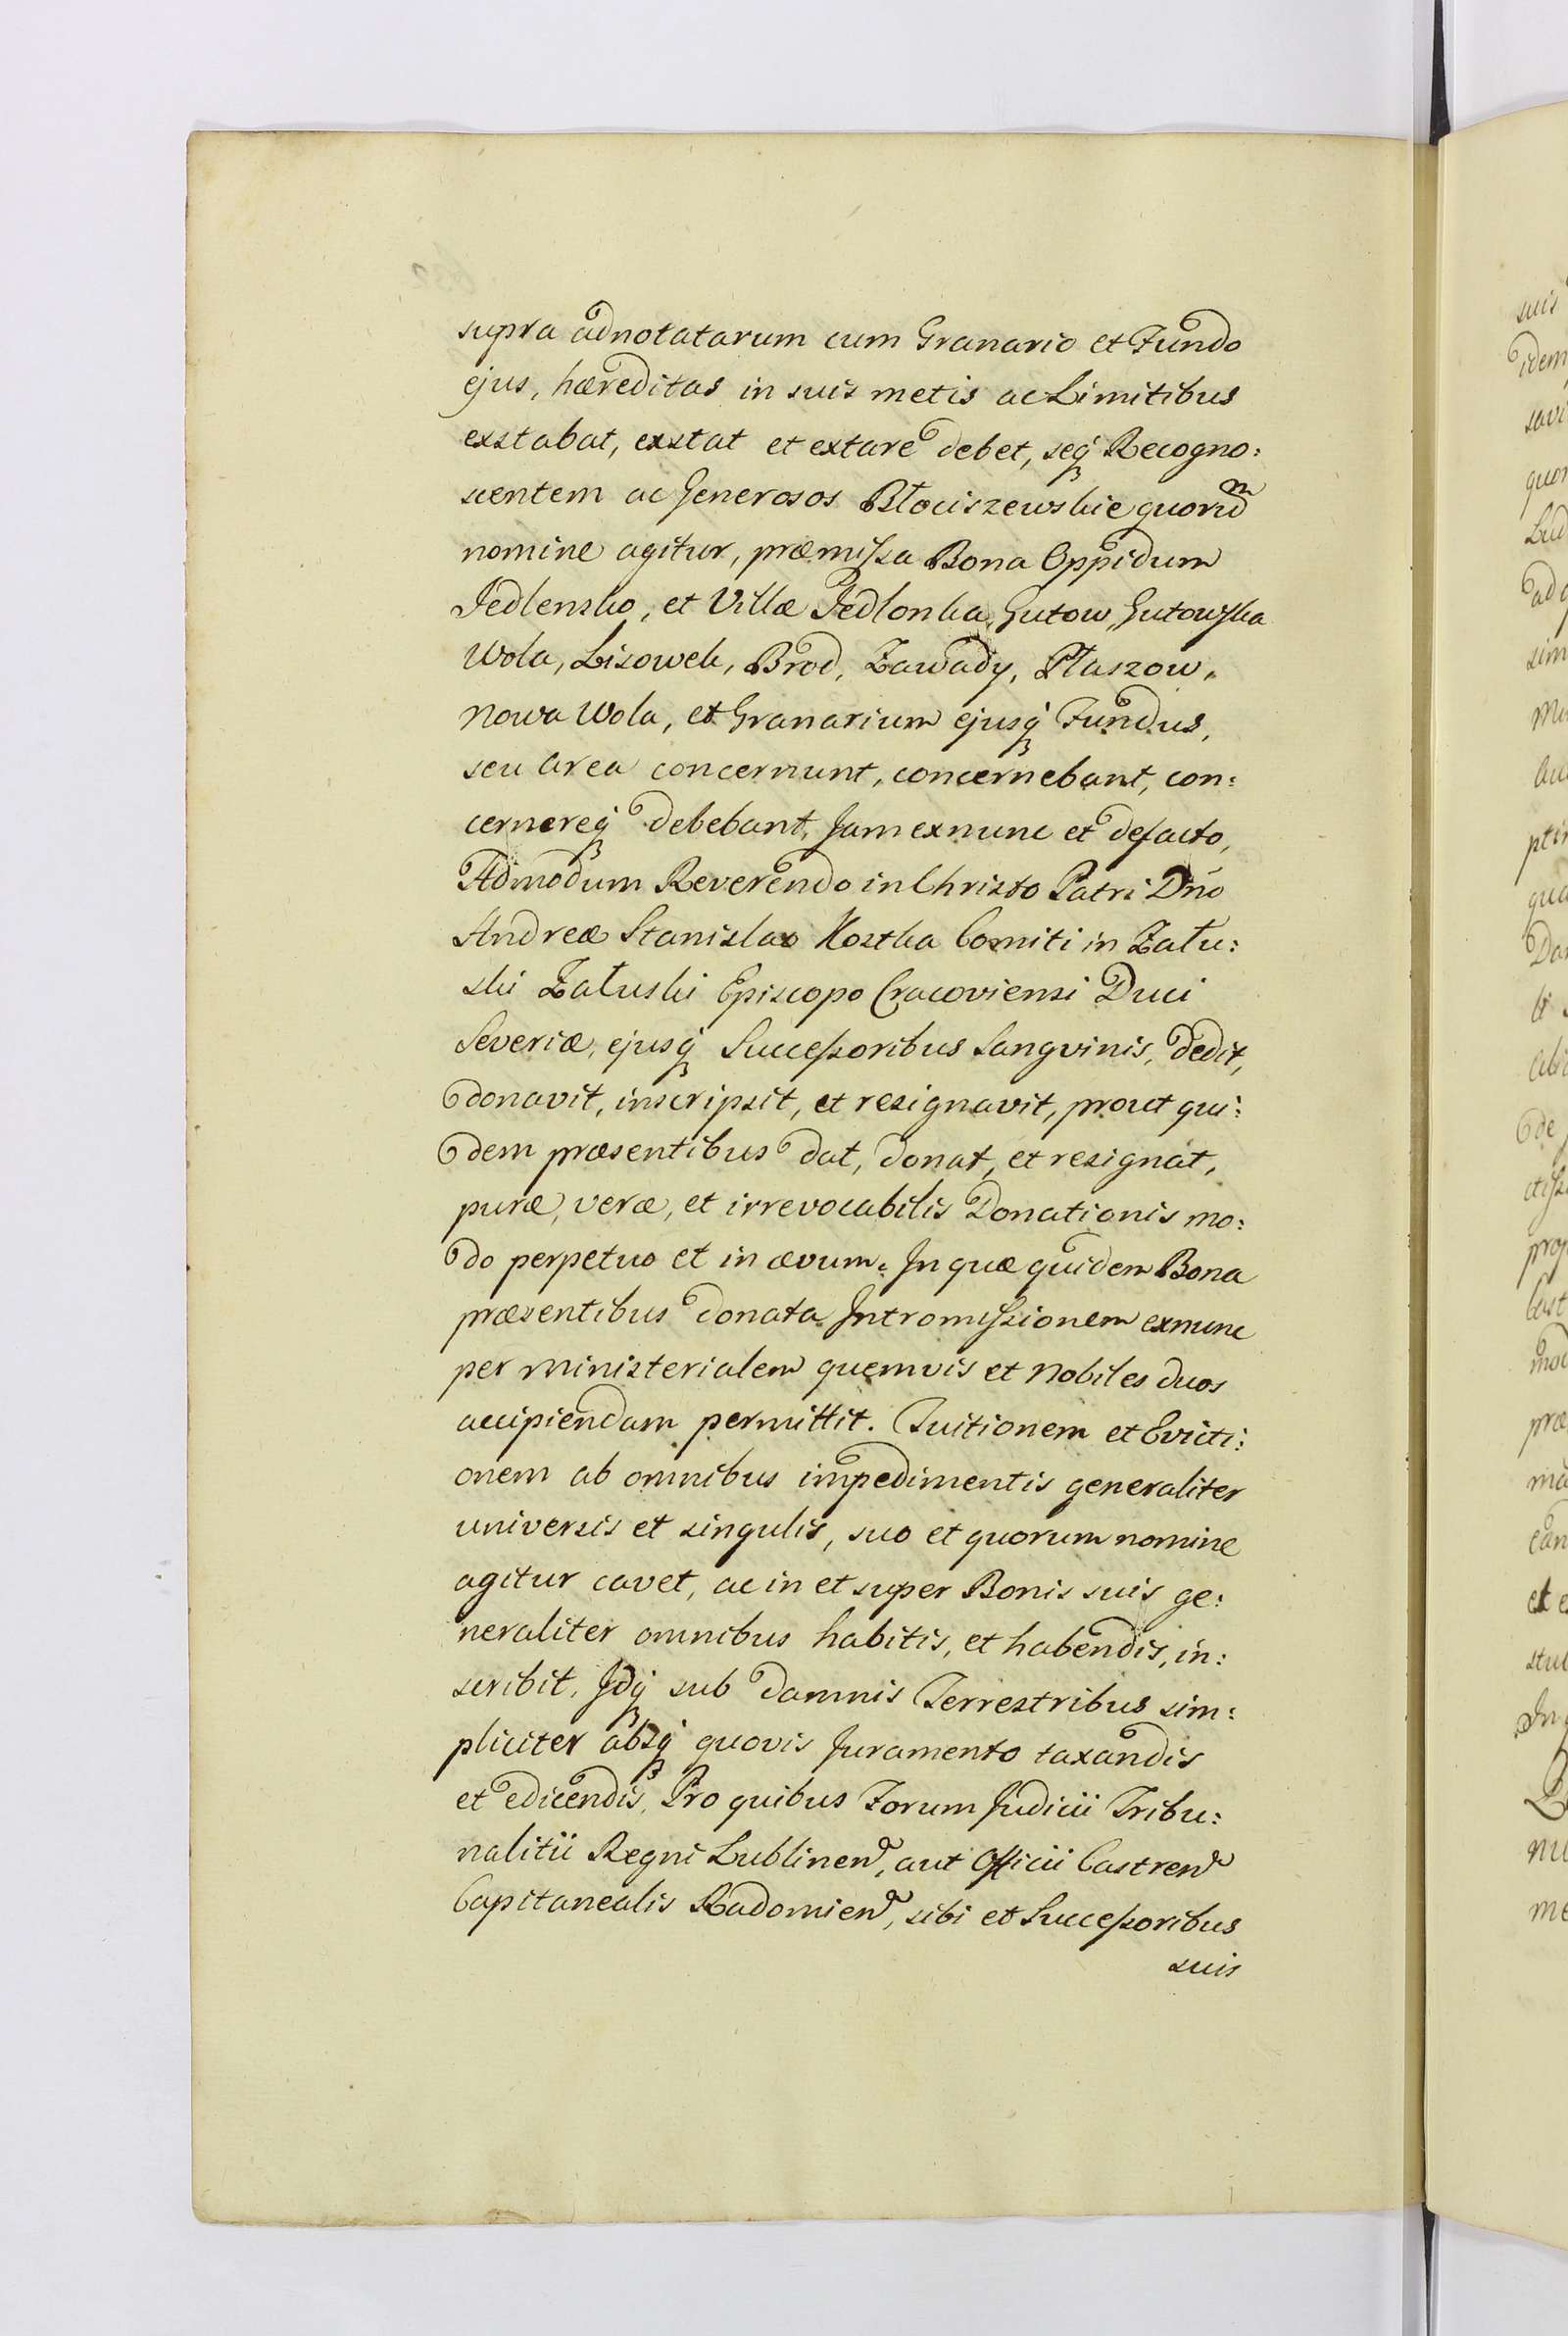 supra adnotatarum cum Granario et Fundo
ejus, hæreditas in suis metis ac Limitibus
exstabat, exstat et extare debet, seq́ Recogno:
scentem ac Generosos Błociszewskie quorum
nomine agitur, præmissa Bona Oppidum
Jedlensko, et Villæ Jedlonka, Gutow, Gutowska
Wola, Lisowek, Brod, Zawady, Płaszow,
Nowa Wola, et Granarium ejusq́ Fundus,
seu area concernunt, concernebant, con:
cernereq́ debebant, Jam exnunc et defacto,
Admodum Reverendo in Christo Patri Dńo
Andreæ Stanislao Kostka Comiti in Zału:
ski Załuski Episcopo Cracoviensi Duci
Severiæ, ejusq́ Successoribus Sangvinis, dedit,
donavit, inscripsit, et resignavit, prout qui:
dem præsentibus dat, donat, et resignat,
puræ, veræ, et irrevocabilis Donationis mo:
do perpetuo et in ævum. In quæ quidem Bona
præsentibus donata Intromissionem exnunc
per Ministerialem quemvis et Nobiles duos
accipiendam permittit. Tuitionem et Evicti:
onem ab omnibus impedimentis generaliter
universis et singulis, suo et quorum nomine
agitur cavet, ac in et super Bonis suis ge:
neraliter omnibus habitis, et habendis, in:
scribit. Idq́ sub damnis Terrestribus sim:
pliciter absq́ quovis Juramento taxandis
et edicendis, Pro quibus Forum Judicii Tribu:
nalitii Regni Lublinen, aut Officii Castren
Capitanealis Radomien, sibi et Successoribus
suis